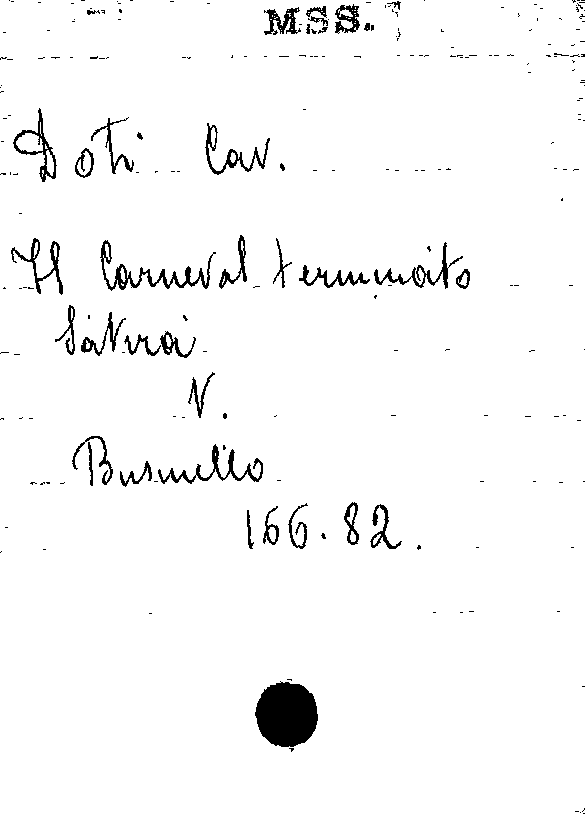 MSS.
Doti Cav.
Il Carneval terminato
Satira
V.
Businello
166.82.